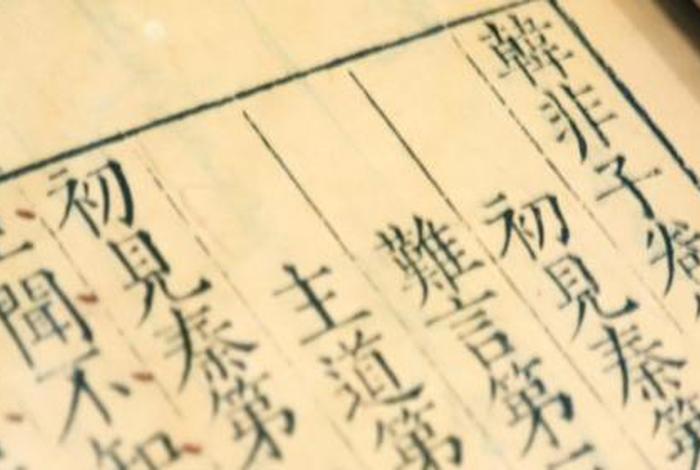 韓非子
初見秦第
難言第
主道第
初見秦第
聞不知